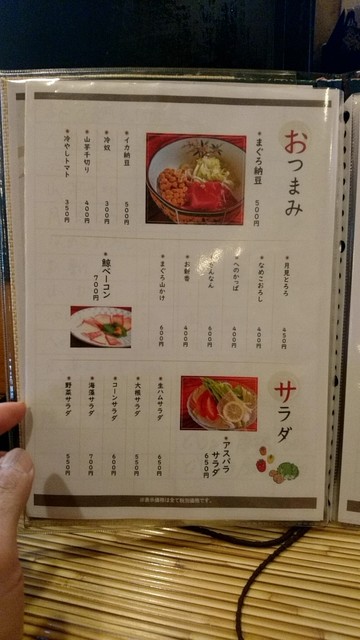 おつまみ
まぐろ納豆 500円
イカ納豆 500円
冷奴 300円
山芋千切り 400円
冷やしトマト 350円
月見とろろ 450円
なめこおろし 400円
へのかっぱ 400円
お新香 400円
まぐろ山かけ 600円
鯨ベーコン 700円
サラダ
アスパラサラダ 650円
生ハムサラダ 650円
大根サラダ 550円
コーンサラダ 600円
海藻サラダ 700円
野菜サラダ 550円
※表示価格はすべて税抜価格です。